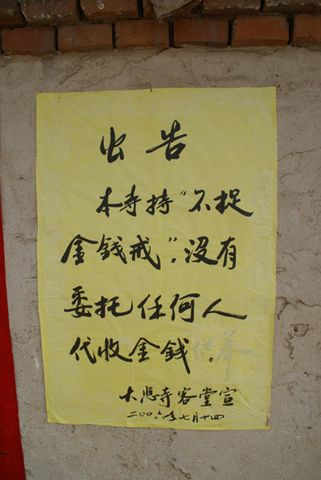 出告
本寺持“不捉
金钱戒”，没有
委托任何人
代收金钱。
大悲寺客堂宣
二〇〇六年七月十四